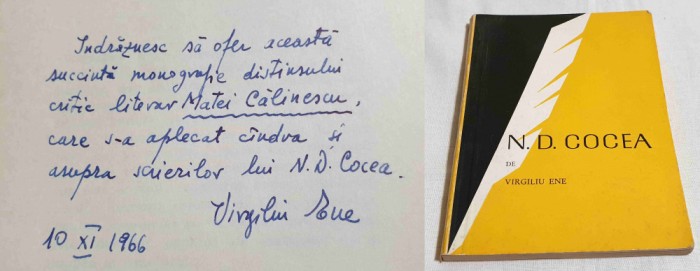 Indrăznesc să ofer această
succintă monografie distinsului
critic literar Matei Călinescu,
care s-a aplecat cîndva și
asupra scrierilor lui N.D. Cocea.
Virgiliu Ene
10 XI 1966
N. D. COCEA
DE
VIRGILIU ENE